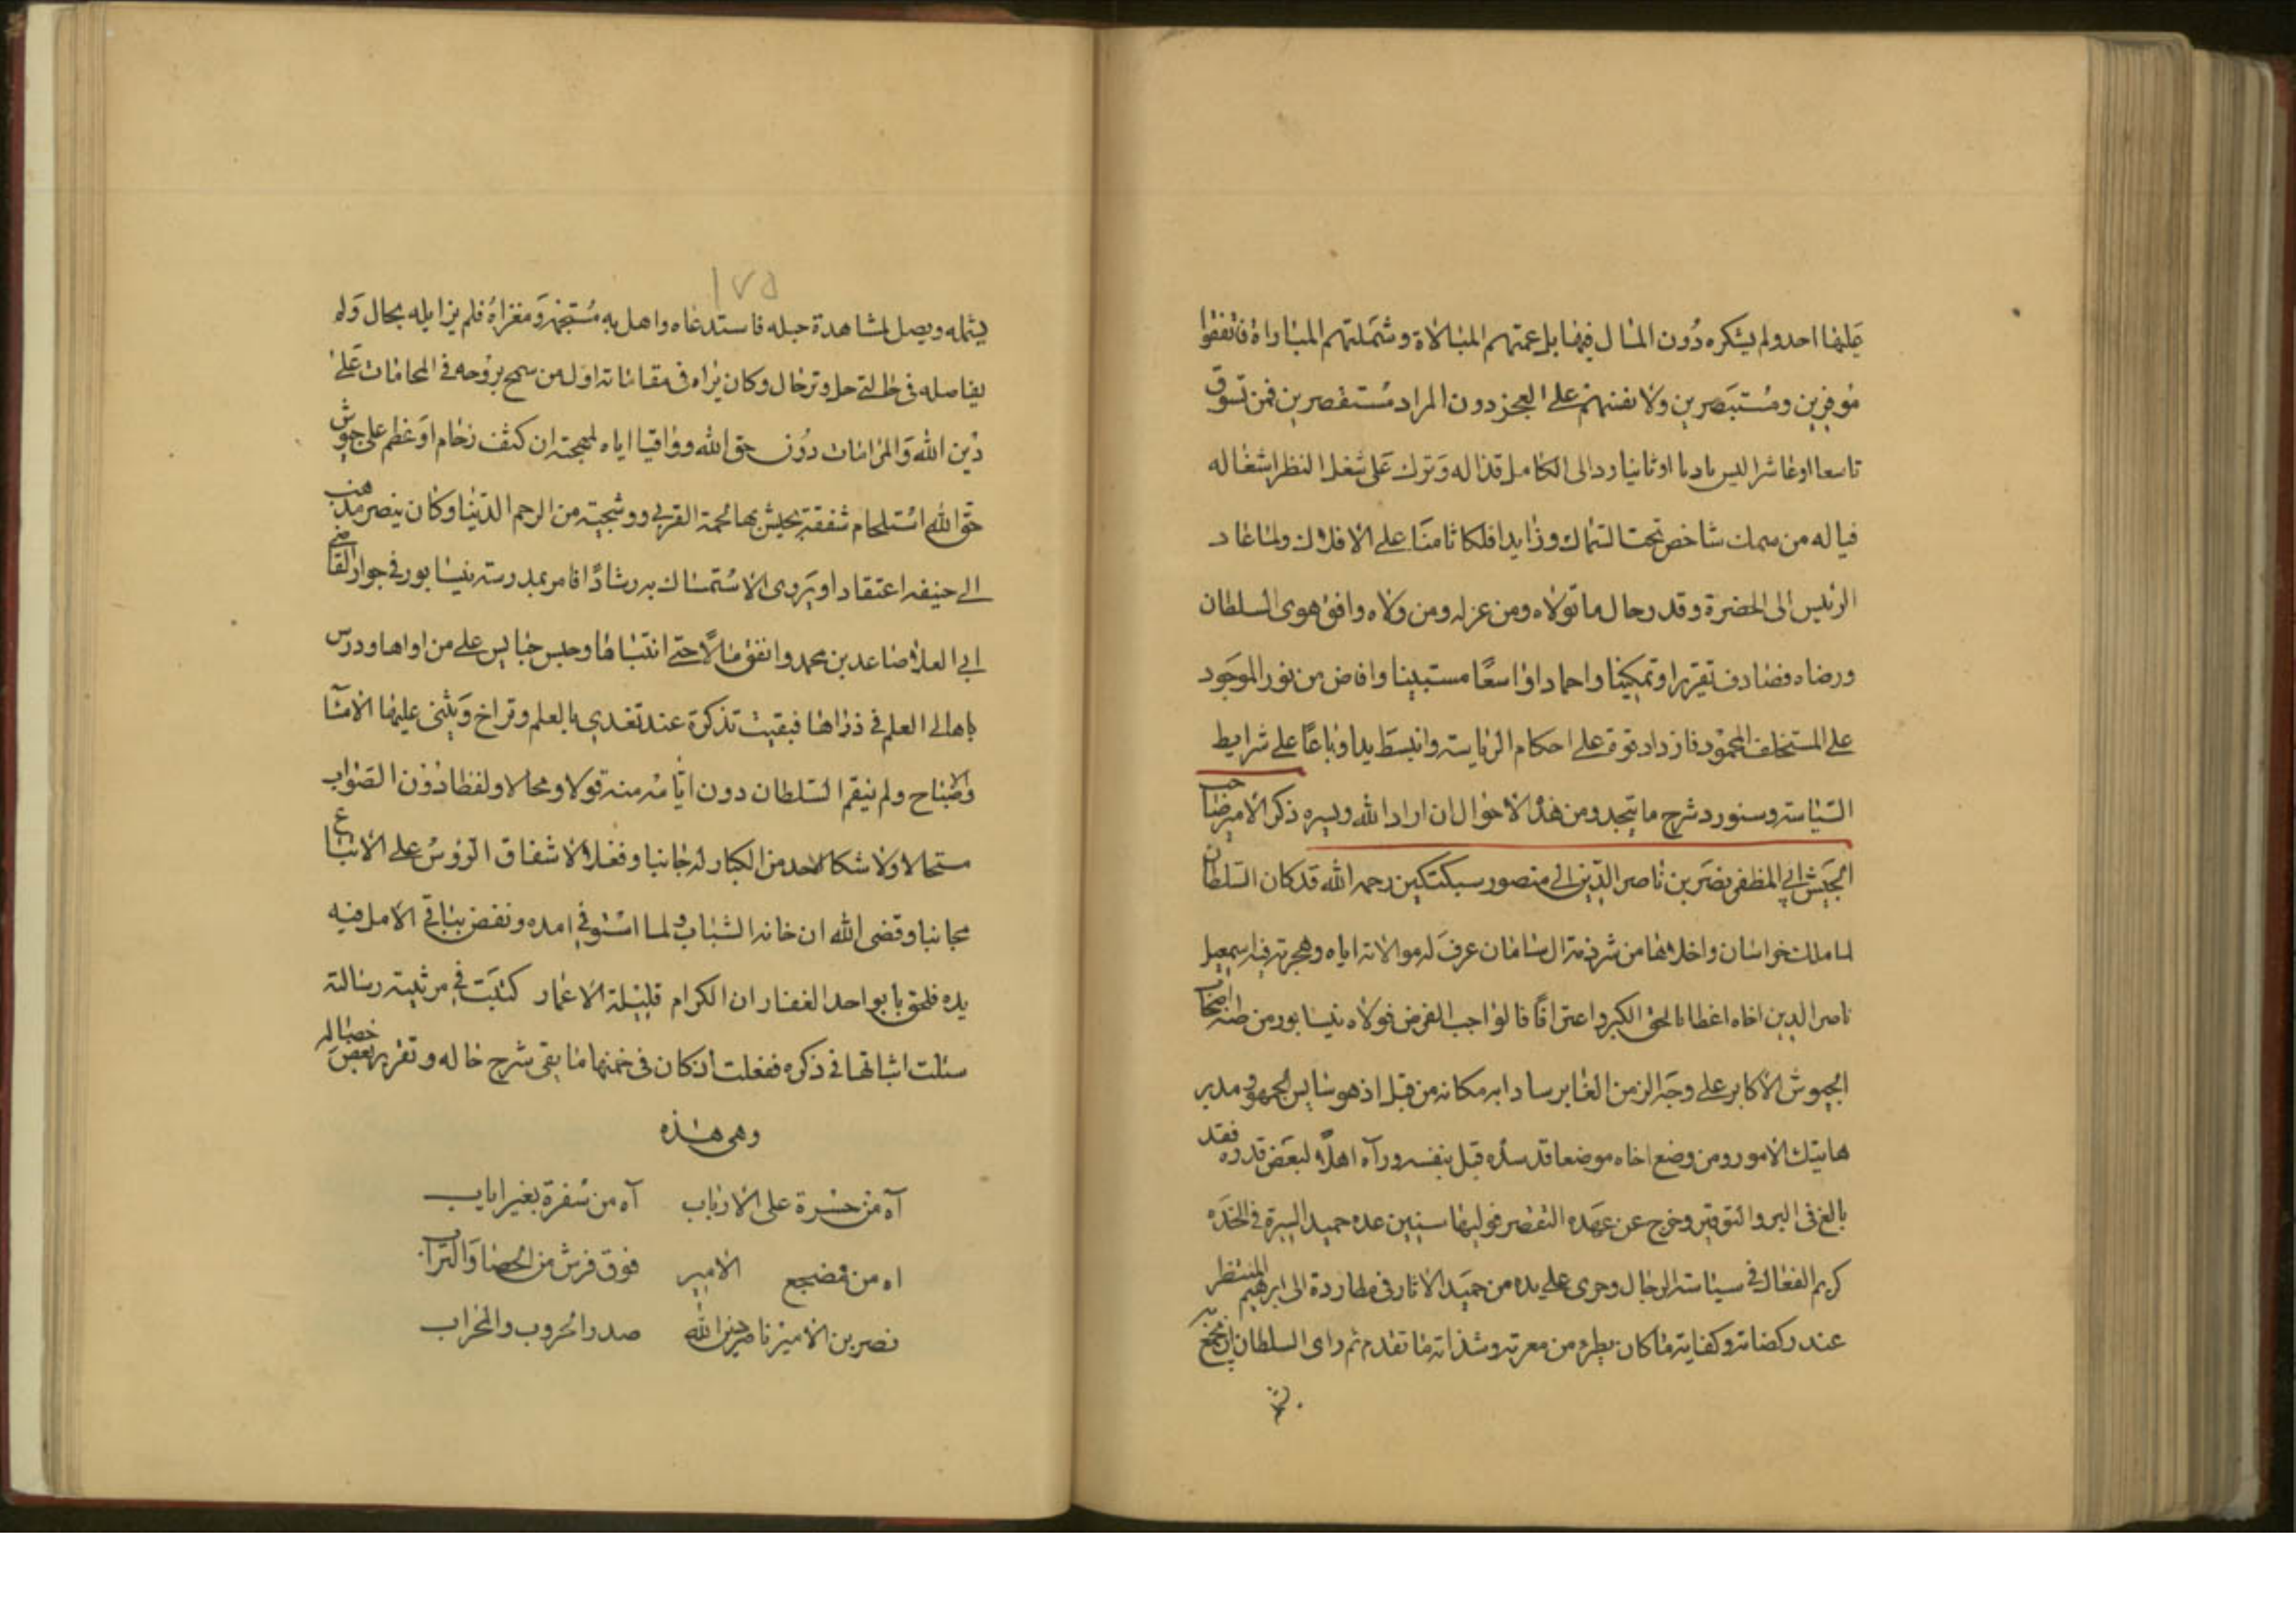 عليها احد ولم يشكره دون المثال فيها بل عمتهم المبالاة وشملتهم المباراة فاتفقوا
موفرين ومستبصرين ولانفسهم على العجز دون المراد مستقصرين فمن تسوق
تاسعا اوعاشرا ليس باديا اوثانيا ورد الى الكامل قذاله وترك على شغل النظر اشغاله
فياله من سمك شاخص تحت السماك وزايدا فلكا ثامنا على الافلاك ولما عاد
الرئيس الى الحضرة وقدر حال ماتولاه ومن عزله ومن ولاه وافق هوى السلطان
ورضاه فصادف تقريرا وتمكينا واحمادا واسعا مستبينا وافاض من نور الموجود
على المستخلف المحمود فازداد قوة على احكام الرياسة وانبسط يدا وباعا على شرايط
السياسة وسنورد شرح مايتجدد من هذه الاحوال ان اراد الله ويسره ذكر الامير صاحب
الجيش ابي المظفر نصر بن ناصر الدين ابي منصور سبكتكين رحمه الله قد كان السلطان
لما ملك خراسان واخلاها من شرذمة ال سامان عرف له موالاته اياه وهجرته فيه اسمعيل
ناصر الدين اخاه اعطا بالحق الكبير واعترافا فالواجب الفرض فولاه نيسابور من اصحاب
الجيوش الاكابر على وجه الزمن الغابر سادا به مكانه من قبل اذ هو سايس الجمهور ومدبر
هاتيك الامور ومن وضع اخاه موضعا قد سده قبل بنفسه ورآه اهلا لبعض قدره فقد
بالغ في البر والتوقير وخرج عن عهده التقصير فوليها سنين عده حميد السيرة في الخده
كريم الفعال في سياسة الرجال وجرى على يده من حميد الاثار في مطاردة ابي ابرهيم المنتظر
عند ركضاته وكفاية ماكان يطرد من معرته وشذاته ماتقدم ثم راى السلطان ان
١٧٥
يشمله ويصل لمشاهدة حبله فاستدعاه واهل به مستجهز ومغزاه فلم يزايله بحال وله
يفاصله في حالتي حل وترحال وكان يراه في مقاماته اول من سمح بروحه في المحامات على
دين الله والمرامات دون حق الله وواقيا اياه لمهجته ان كثف زحام او غطم على جيوش
حق الله استلحام شفقة يجيش بها لحمة القربى ووشجته من الرحم الدنيا وكان ينصر مذهب
ابي حنيفه اعتقادا ويروى الاستمساك به رشادا فامر بمدرسته نيسابور في جوار القاضي
ابي العلا صاعد بن محمد وانفق مالا حتى ابتناها وحبس حبايس على من اواها ودرس
باهالي العلم في ذراها فبقيت تذكرة عند تغدى بالعلم وتراخ ويثنى عليها الامسا
والاصباح ولم ينقم السلطان دون ايامه منه قولا ومحالا ولفظا دون الصواب
مستحالا ولا شكا لاحد من الكبار له جانبا وفعلا لاشفاق الرؤس على الاتباع
مجانبا وقضى الله ان خانه الشباب ولما استوفي امده ونفض بباقي الامل فيه
يده فلحق بابوا حد الغفار ان الكرام قليلة الاعمار كتبت في مرثيته رسالته
سئلت اثباتها في ذكره ففعلت اذ كان في ضمنها مابقي شرح حاله وتقرير بعض خصاله
وهي هذه
آه من حسرة على الارباب آه من سفرة بغير اياب
اه من مضجع الامير فوق فرش من الحصا والتراب
نصر بن الامير ناصر دين الله صدر الحروب والمحراب